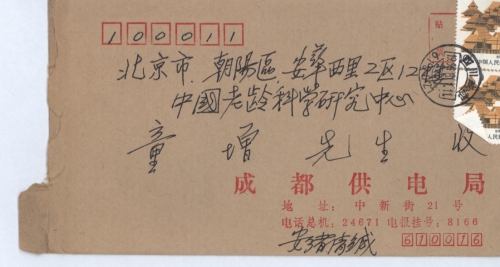 100011
北京市.朝陽區.安華西里2区12楼
中國老龄科学研究中心
童增先生 收
成都供电局
地址：中新街21号
电话总机：24671 电报挂号：8166
610016
贴
四川
中国人民
人民